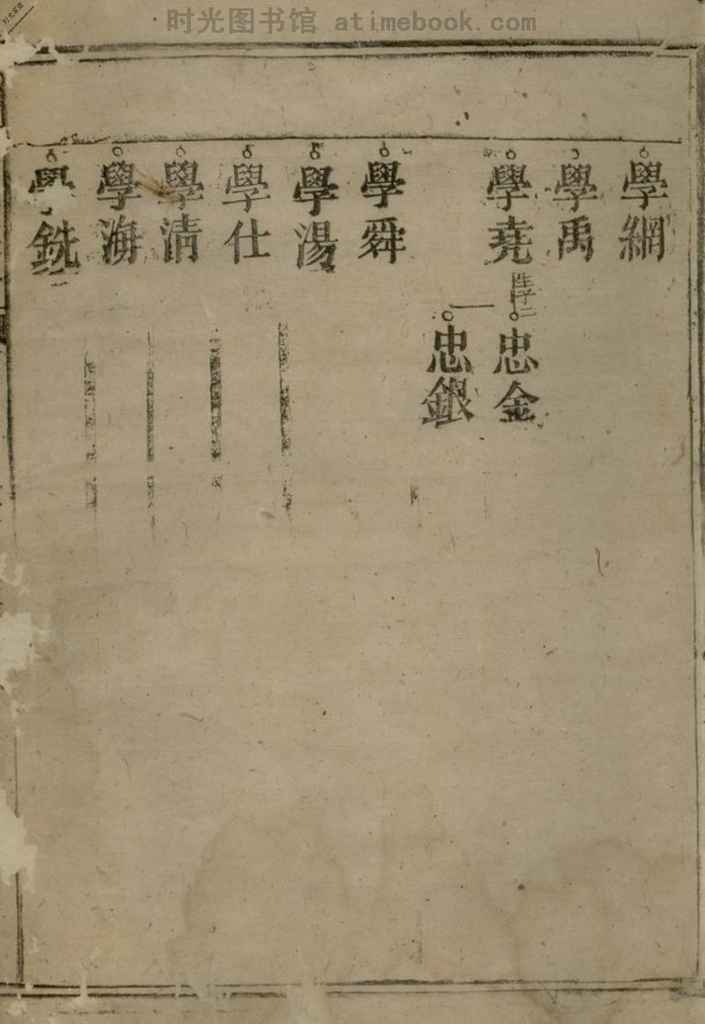 时光图书馆 atimebook.com
學網
學禹
學堯
生子二
忠金
忠銀
學舜
學湯
學仕
學清
學海
學銑